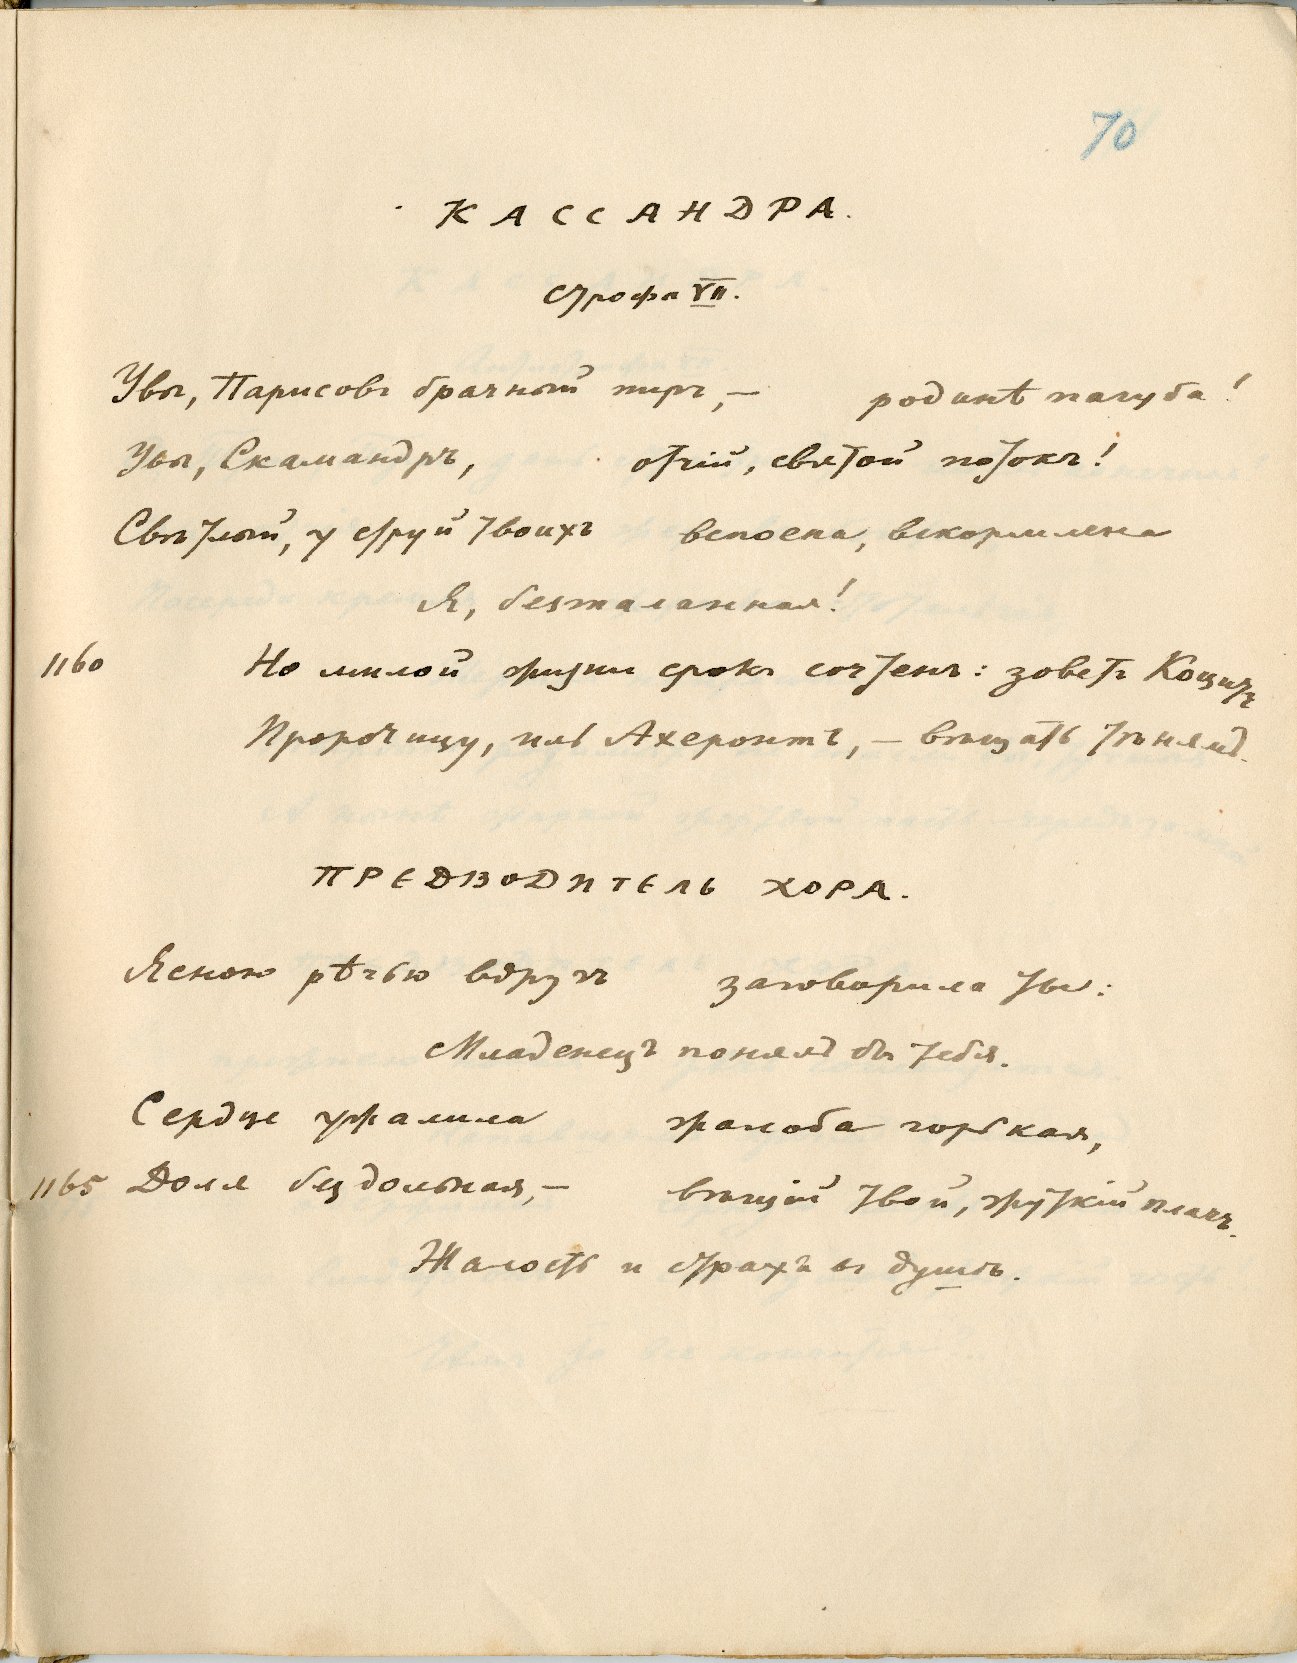 70
КАССАНДРА.
Строфа VII.
Увы, Парисовъ брачный пиръ, — родинѣ пагуба!
Увы, Скамандръ, отчій, святой потокъ!
Свѣтлый, у струй твоихъ вспоена, вскормлена
Я, безталанная!
1160 Но милой жизни срокъ сочтенъ: зоветъ Коцитъ
Пророчицу, иль Ахеронтъ, — вѣщать тѣнямъ.
ПРЕДВОДИТЕЛЬ ХОРА.
Ясною рѣчью вдругъ заговорила ты:
Младенецъ понялъ бы тебя.
Сердце ужалила жалоба горькая,
1165 Доля бездольная, — вѣщій твой, жуткій плачъ.
Жалость и страхъ въ душѣ.